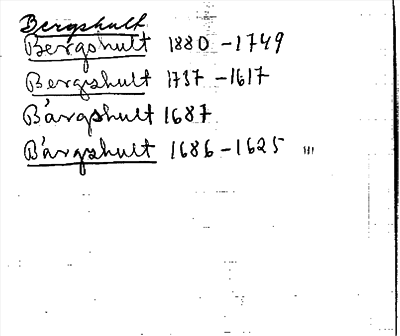 Bergshult
Bergshult 1880 - 1749
Bergshult 1737 - 1617
Bårgshult 1687
Bårgshult 1686 - 1625 ""